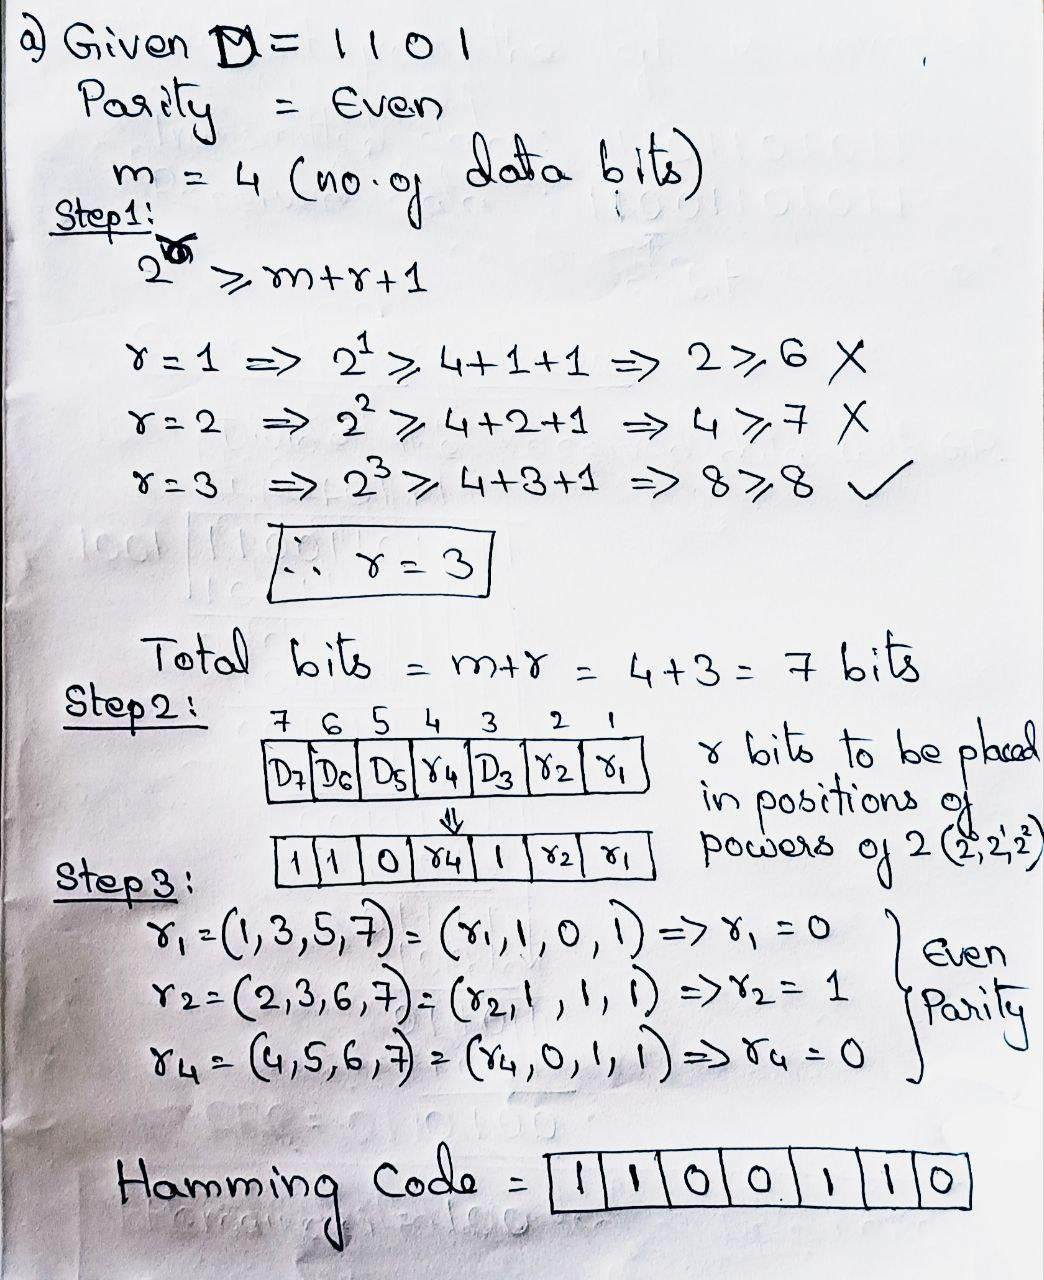 a) Given M = 1101
Parity = Even
m = 4 (no. of data bits)
Step1:
2^r ≥ m+r+1
r=1 ⇒ 2^1 ≥ 4+1+1 ⇒ 2≥6 X
r=2 ⇒ 2^2 ≥ 4+2+1 ⇒ 4≥7 X
r=3 ⇒ 2^3 ≥ 4+3+1 ⇒ 8≥8 ✓
∴ r=3
Total bits = m+r = 4+3 = 7 bits
Step2:
7 6 5 4 3 2 1
D7 D6 D5 r4 D3 r2 r1
⇓
1 1 0 r4 1 r2 r1
r bits to be placed
in positions of
powers of 2 (2^0, 2^1, 2^2)
Step3:
r1 = (1,3,5,7) = (r1,1,0,1) ⇒ r1 = 0
r2 = (2,3,6,7) = (r2,1,1,1) ⇒ r2 = 1
r4 = (4,5,6,7) = (r4,0,1,1) ⇒ r4 = 0
Even
Parity
Hamming Code = 1 1 0 0 1 1 0